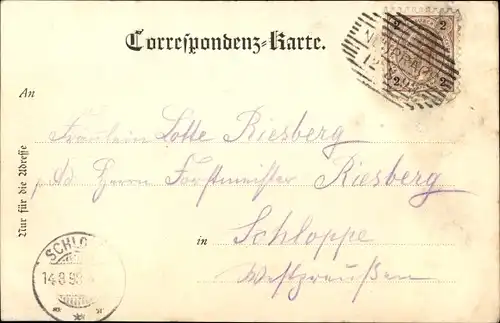 Correspondenz-Karte.
2 2
2 2
An
Fräulein Lotte Riesberg
Herrn Forstmeister Riesberg
in Schloppe
Westpreußen
Nur für die Adresse
SCHLO
14.8.98